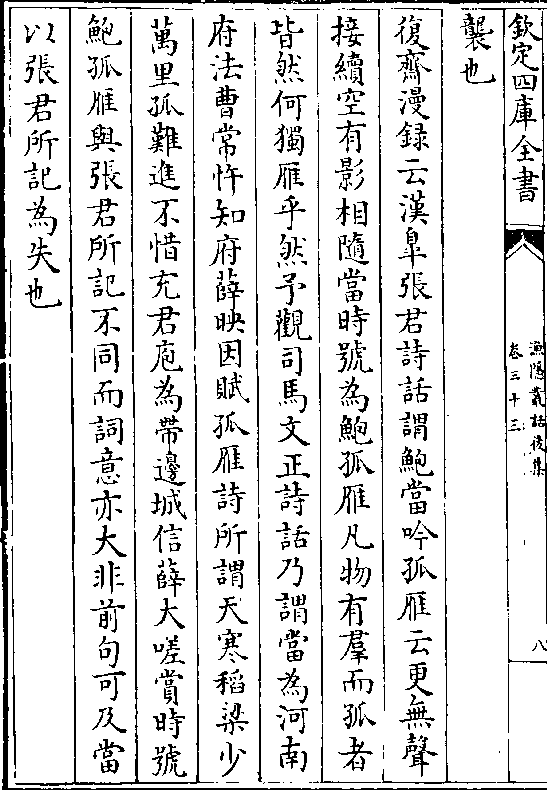 欽定四庫全書
漁隱叢話後集
卷三十三
八
襲也
復齋漫録云漢臯張君詩話謂鮑當吟孤雁云更無聲
接續空有影相隨當時號為鮑孤雁凡物有羣而孤者
皆然何獨雁乎然予觀司馬文正詩話乃謂當為河南
府法曹常忤知府薛映因賦孤雁詩所謂天寒稻粱少
萬里孤難進不惜充君庖為帶邊城信薛大嗟賞時號
鮑孤雁與張君所記不同而詞意亦大非前句可及當
以張君所記為失也